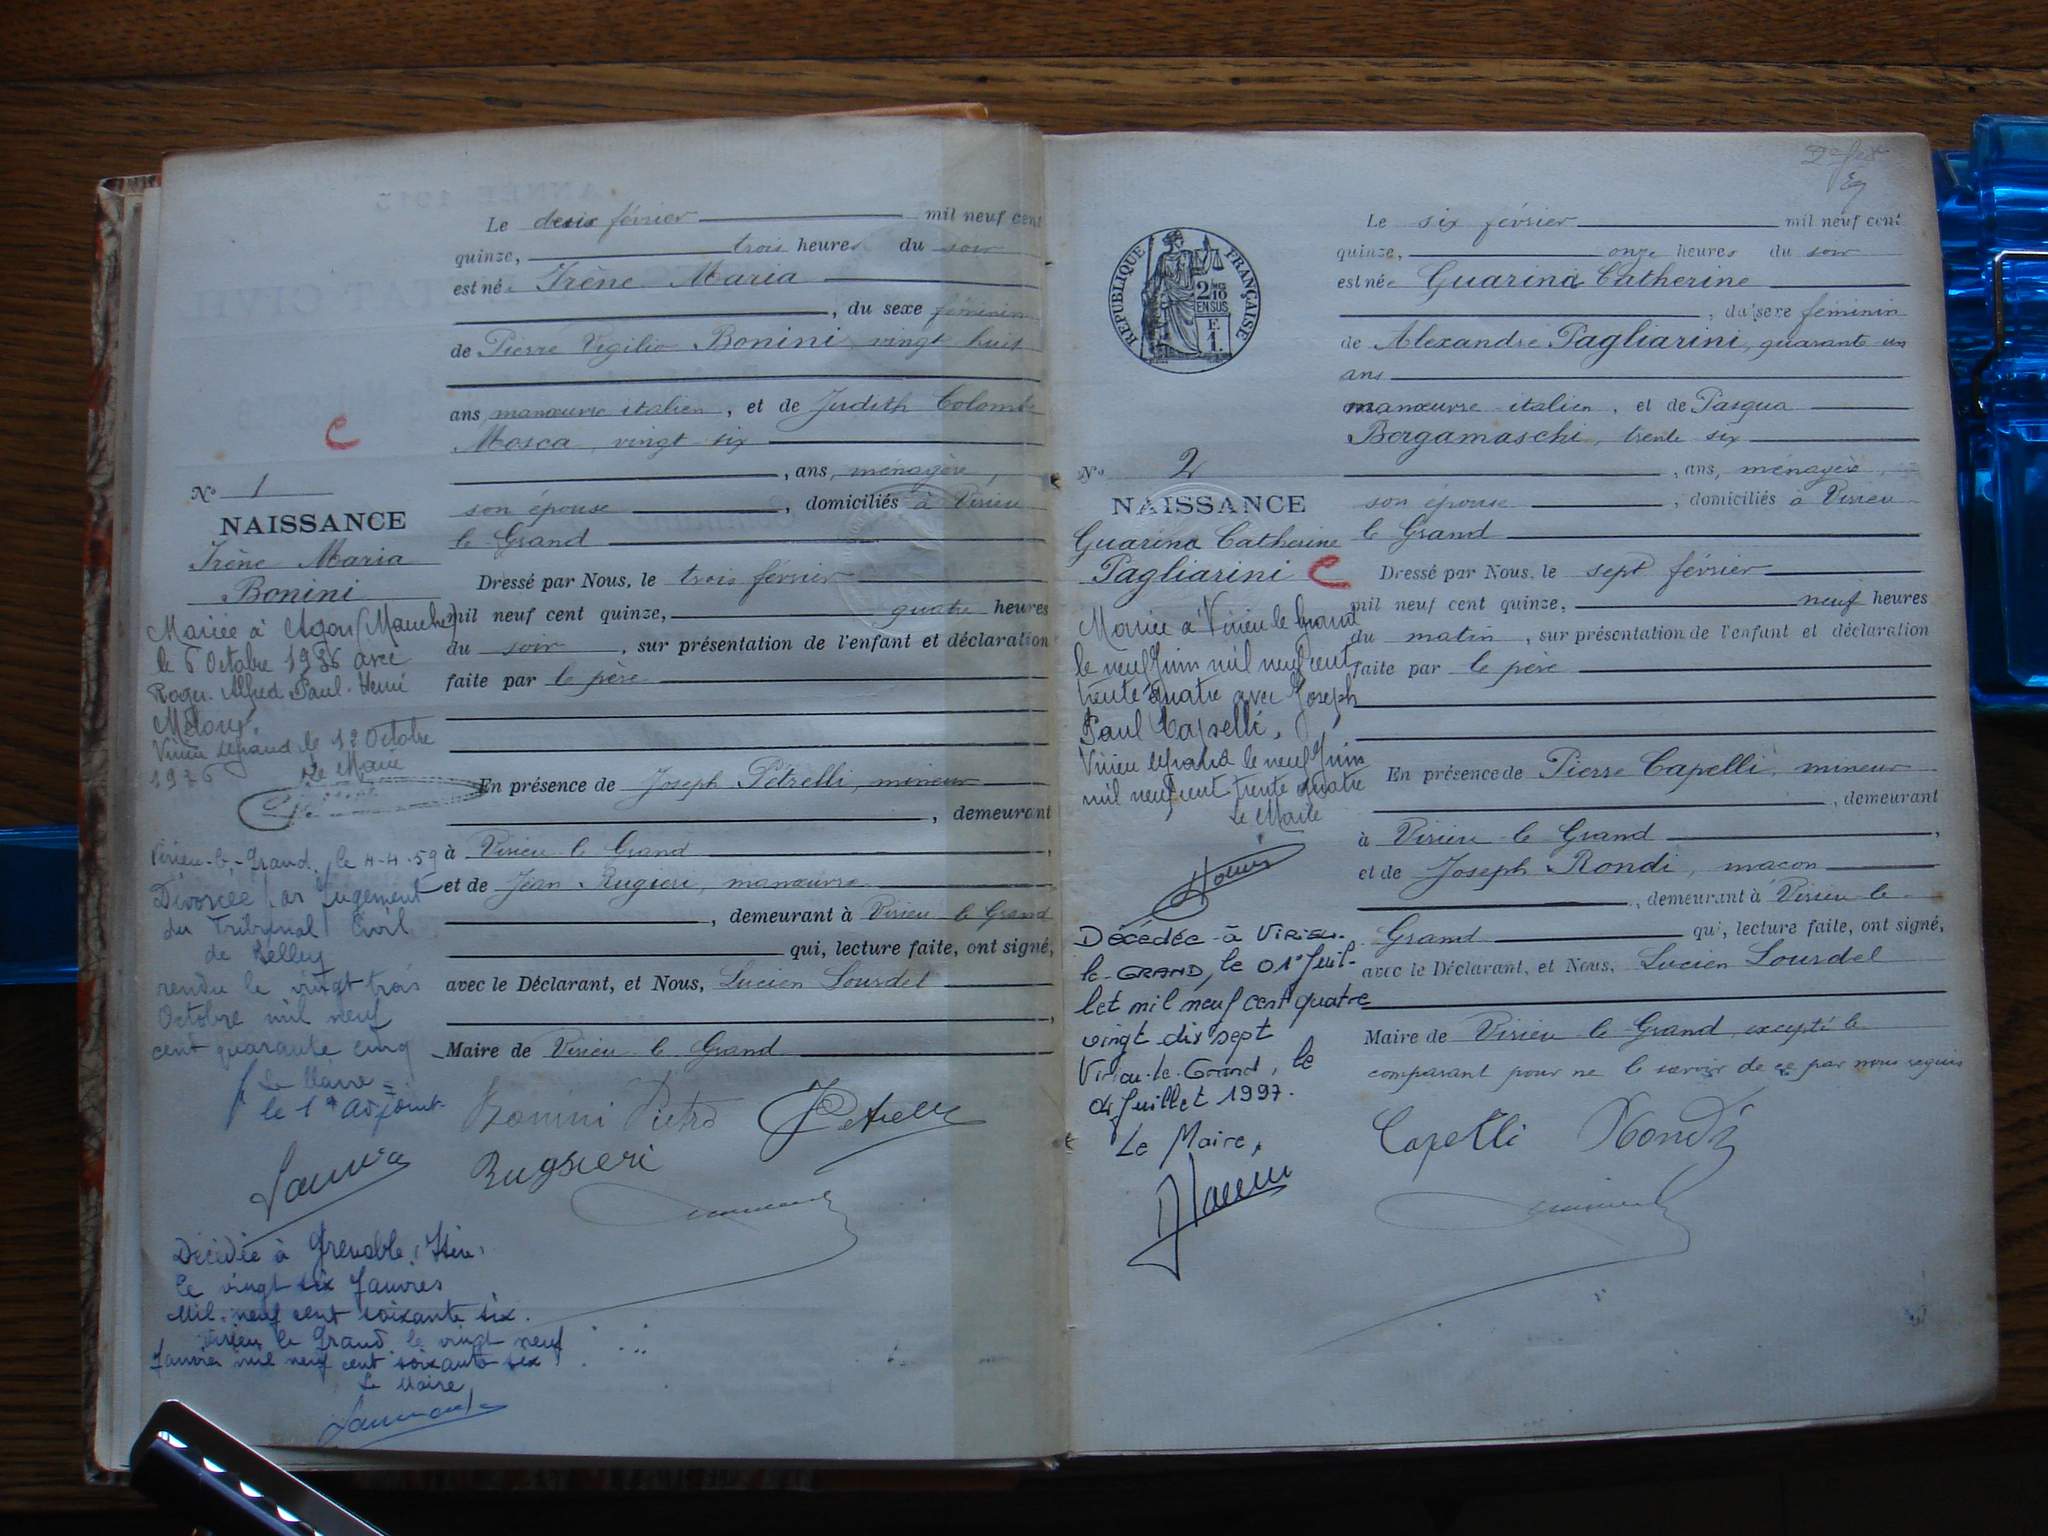 Le deux février mil neuf cent
quinze, trois heures du soir
est née Irène Maria
, du sexe féminin
de Pierre Vigilio Bonini, vingt huit
ans manœuvre italien, et de Judith Colombe
Mosca, vingt six
, ans, ménagère,
son épouse, domiciliés à Virieu
le Grand
Dressé par Nous, le trois février
mil neuf cent quinze, quatre heures
du soir, sur présentation de l'enfant et déclaration
faite par le père
En présence de Joseph Pétrelli, mineur
, demeurant
à Virieu le Grand,
et de Jean Rugieri, manœuvre
, demeurant à Virieu le Grand
qui, lecture faite, ont signé,
avec le Déclarant, et Nous, Lucien Lourdel
,
Maire de Virieu le Grand
Bonini Pietro Petrelli
Rugsieri
No 1
NAISSANCE
Irène Maria
Bonini
Mariée à Agon (Manche)
le 6 Octobre 1936 avec
Roger Alfred Paul Henri
Virieu le grand le 12 Octobre
1936
Le Maire
Virieu-le-Grand, le 4-4-59
Divorcée par Jugement
du Tribunal Civil
de Belley
rendu le vingt trois
Octobre mil neuf
cent quarante cinq
Le Maire =
le 1er Adjoint
Décédée à Grenoble (Isère)
le vingt six Janvier
Mil neuf cent soixante six.
Virieu le Grand le vingt neuf
Janvier mil neuf cent soixante six
Le Maire
REPUBLIQUE FRANÇAISE
2/10
EN SUS
F.
1.
Le six février mil neuf cent
quinze, onze heures du soir
est née Guarina Catherine
, du sexe féminin
de Alexandre Pagliarini, quarante un
ans
manœuvre italien, et de Pasqua
Bergamaschi, trente six
, ans, ménagère,
son épouse, domiciliés à Virieu
le Grand
Dressé par Nous, le sept février
mil neuf cent quinze, neuf heures
du matin, sur présentation de l'enfant et déclaration
faite par le père
En présence de Pierre Capelli, mineur
, demeurant
à Virieu le Grand,
et de Joseph Rondi, maçon
, demeurant à Virieu le
Grand qui, lecture faite, ont signé,
avec le Déclarant, et Nous, Lucien Lourdel
Maire de Virieu le Grand, excepté le
comparant pour ne le savoir de ce par nous requis
Capelli Rondi
No 2
NAISSANCE
Guarina Catherine
Pagliarini
Mariée à Virieu le Grand
le neuf Juin mil neuf cent
trente quatre avec Joseph
Paul Capelli.
Virieu le grand le neuf Juin
mil neuf cent trente quatre
Le Maire
Décédée à VIRIEU-
le-GRAND, le 01er Juil-
let mil neuf cent quatre
vingt dix sept
Virieu-le-Grand, le
04 Juillet 1997.
Le Maire,